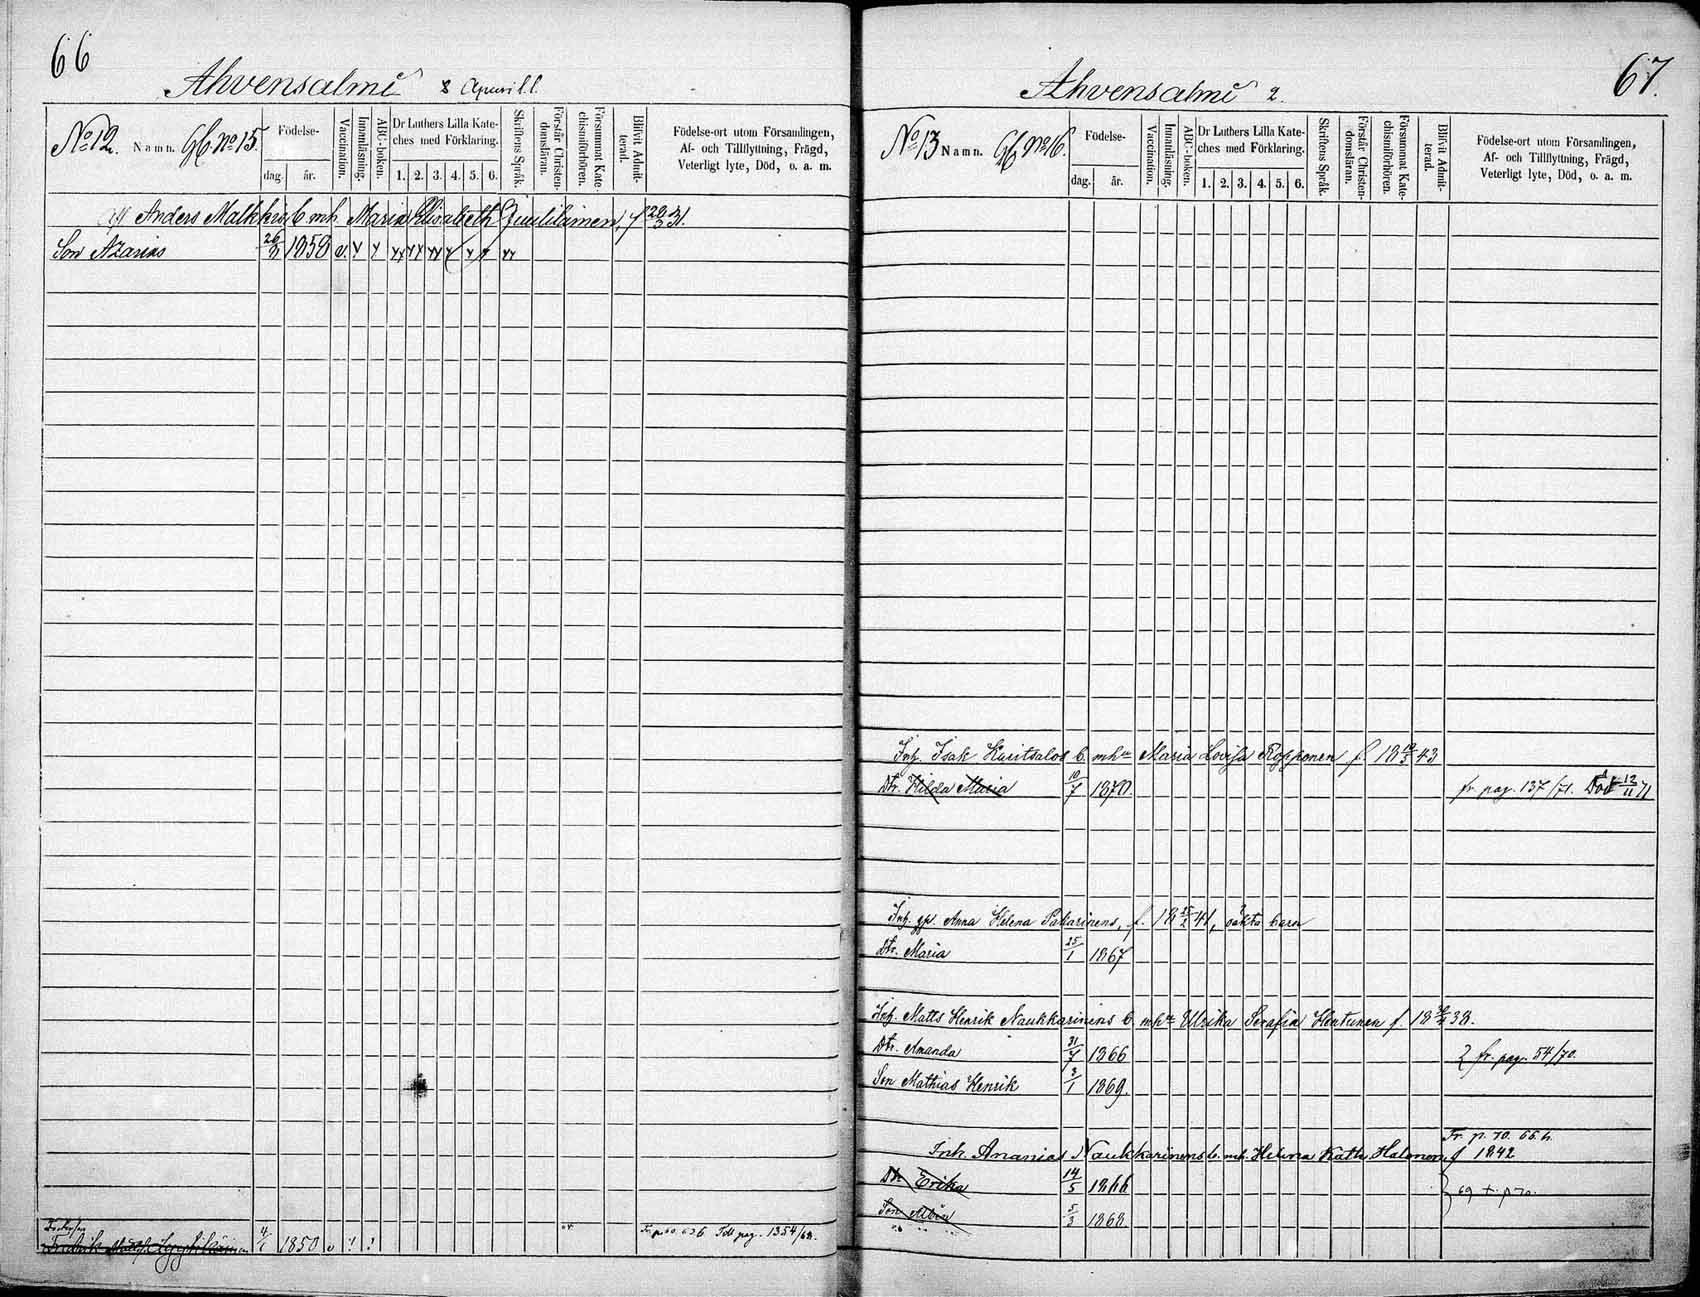 66
Ahvensalmi 8
No 12. Namn. Gb. No 15.
Födelse-
dag. år.
Vaccination.
Innanläsning.
ABC-boken.
Dr Luthers Lilla Kate-
ches med Förklaring.
1. 2. 3. 4. 5. 6.
Skriftens Språk.
Förstår Christen-
domsläran.
Försummat Kate-
chismiförhören.
Blifvit Admit-
terad.
Födelse-ort utom Församlingen,
Af- och Tillflyttning, Frägd,
Veterligt lyte, Död, o. a. m.
Anders Malkkis b. mh. Maria Elisabeth
Son Azarias 1858 v.
1850 v ! !
67.
Ahvensalmi 2.
No 13 Namn. Gb. No 16.
Födelse-
dag. år.
Vaccination.
Innanläsning.
ABC-boken.
Dr Luthers Lilla Kate-
ches med Förklaring.
1. 2. 3. 4. 5. 6.
Skriftens Språk.
Förstår Christen-
domsläran.
Försummat Kate-
chismiförhören.
Blifvit Admit-
terad.
Födelse-ort utom Församlingen,
Af- och Tillflyttning, Frägd,
Veterligt lyte, Död, o. a. m.
Inh. Isak b. mh Maria Lovisa Ropponen f. 18 19/3 43
Dtr. Hilda Maria 10/7 1870. fr. pag. 137/71. Död 12/11 71
Inh. Anna Helena Pakarinens, f. 18 41, oäkta barn
Dtr. Maria 25/1 1867
Inh. Matts Henrik Naukkarinens b. mh Ulrika Serafia f. 18 38.
Dtr. Amanda 31/7 1866 fr. pag. 54/70.
Son Mathias Henrik 3/1 1869.
Fr. p. 70.
Inh. Ananias Naukkarinens b. mh. Helena Kath. Halonen f 1842
Dtr Erika 14/5 1866
Son Albin 5/3 1868